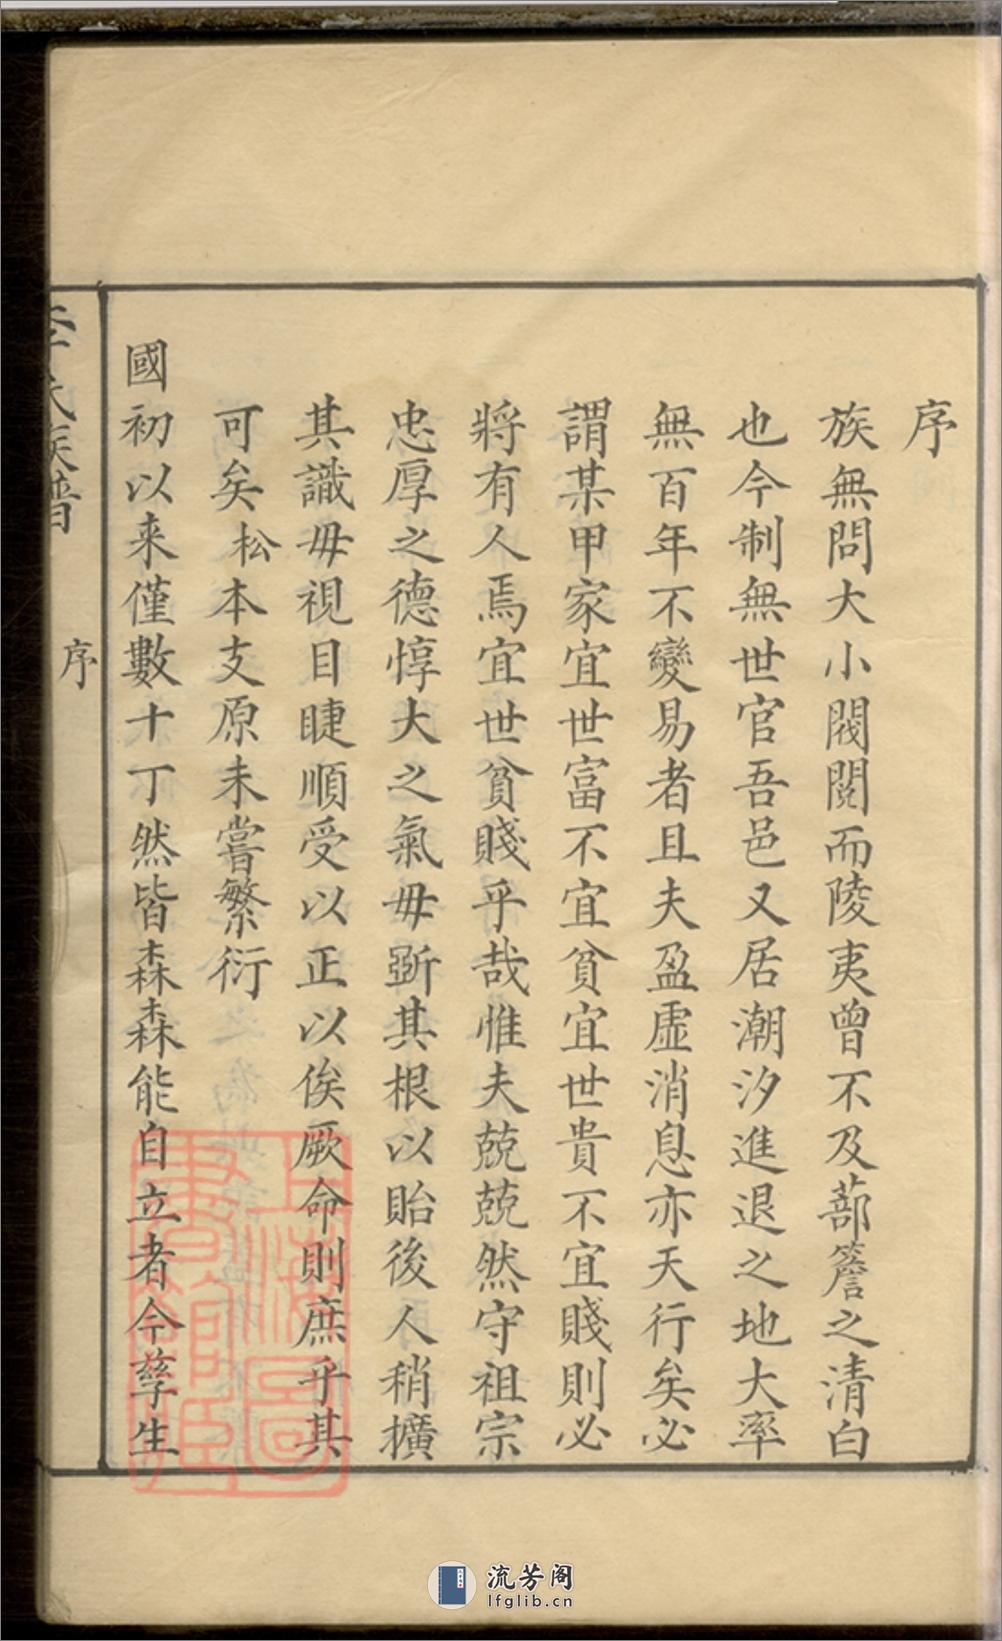 序
族無問大小閥閱而陵夷曾不及蔀簷之清白
也今制無世官吾邑又居潮汐進退之地大率
無百年不變易者且夫盈虛消息亦天行矣必
謂某甲家宜世富不宜貧宜世貴不宜賤則必
將有人焉宜世貧賤乎哉惟夫兢兢然守祖宗
忠厚之德惇大之氣毋斲其根以貽後人稍擴
其識毋視目睫順受以正以俟厥命則庶乎其
可矣松本支原未嘗繁衍
國初以来僅數十丁然皆森森能自立者今孳生
李氏族譜
序
上海圖書館藏
流芳阁
lfglib.cn